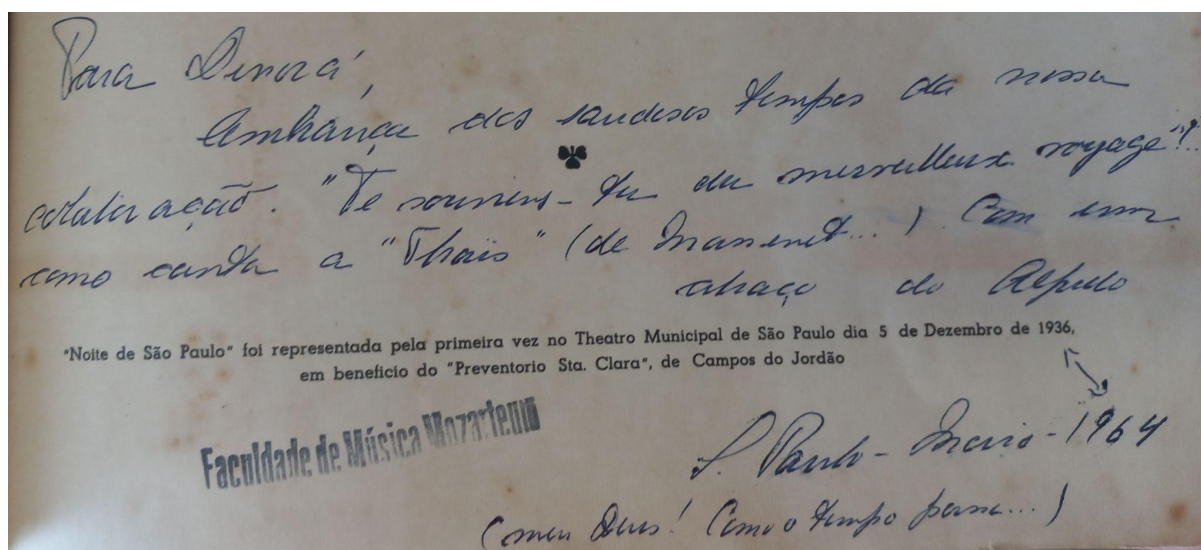 Para Dinorá,
lembrança dos saudosos tempos da nossa
colaboração. "Te souviens-tu du merveilleux voyage"!..
como canta a "Thaïs" (de Massenet...) Com um
abraço do Alfredo
"Noite de São Paulo" foi representada pela primeira vez no Theatro Municipal de São Paulo dia 5 de Dezembro de 1936,
em beneficio do "Preventorio Sta. Clara", de Campos do Jordão
Faculdade de Música Mozarteum
S. Paulo - Maio - 1964
(meu Deus! Como o tempo passa...)